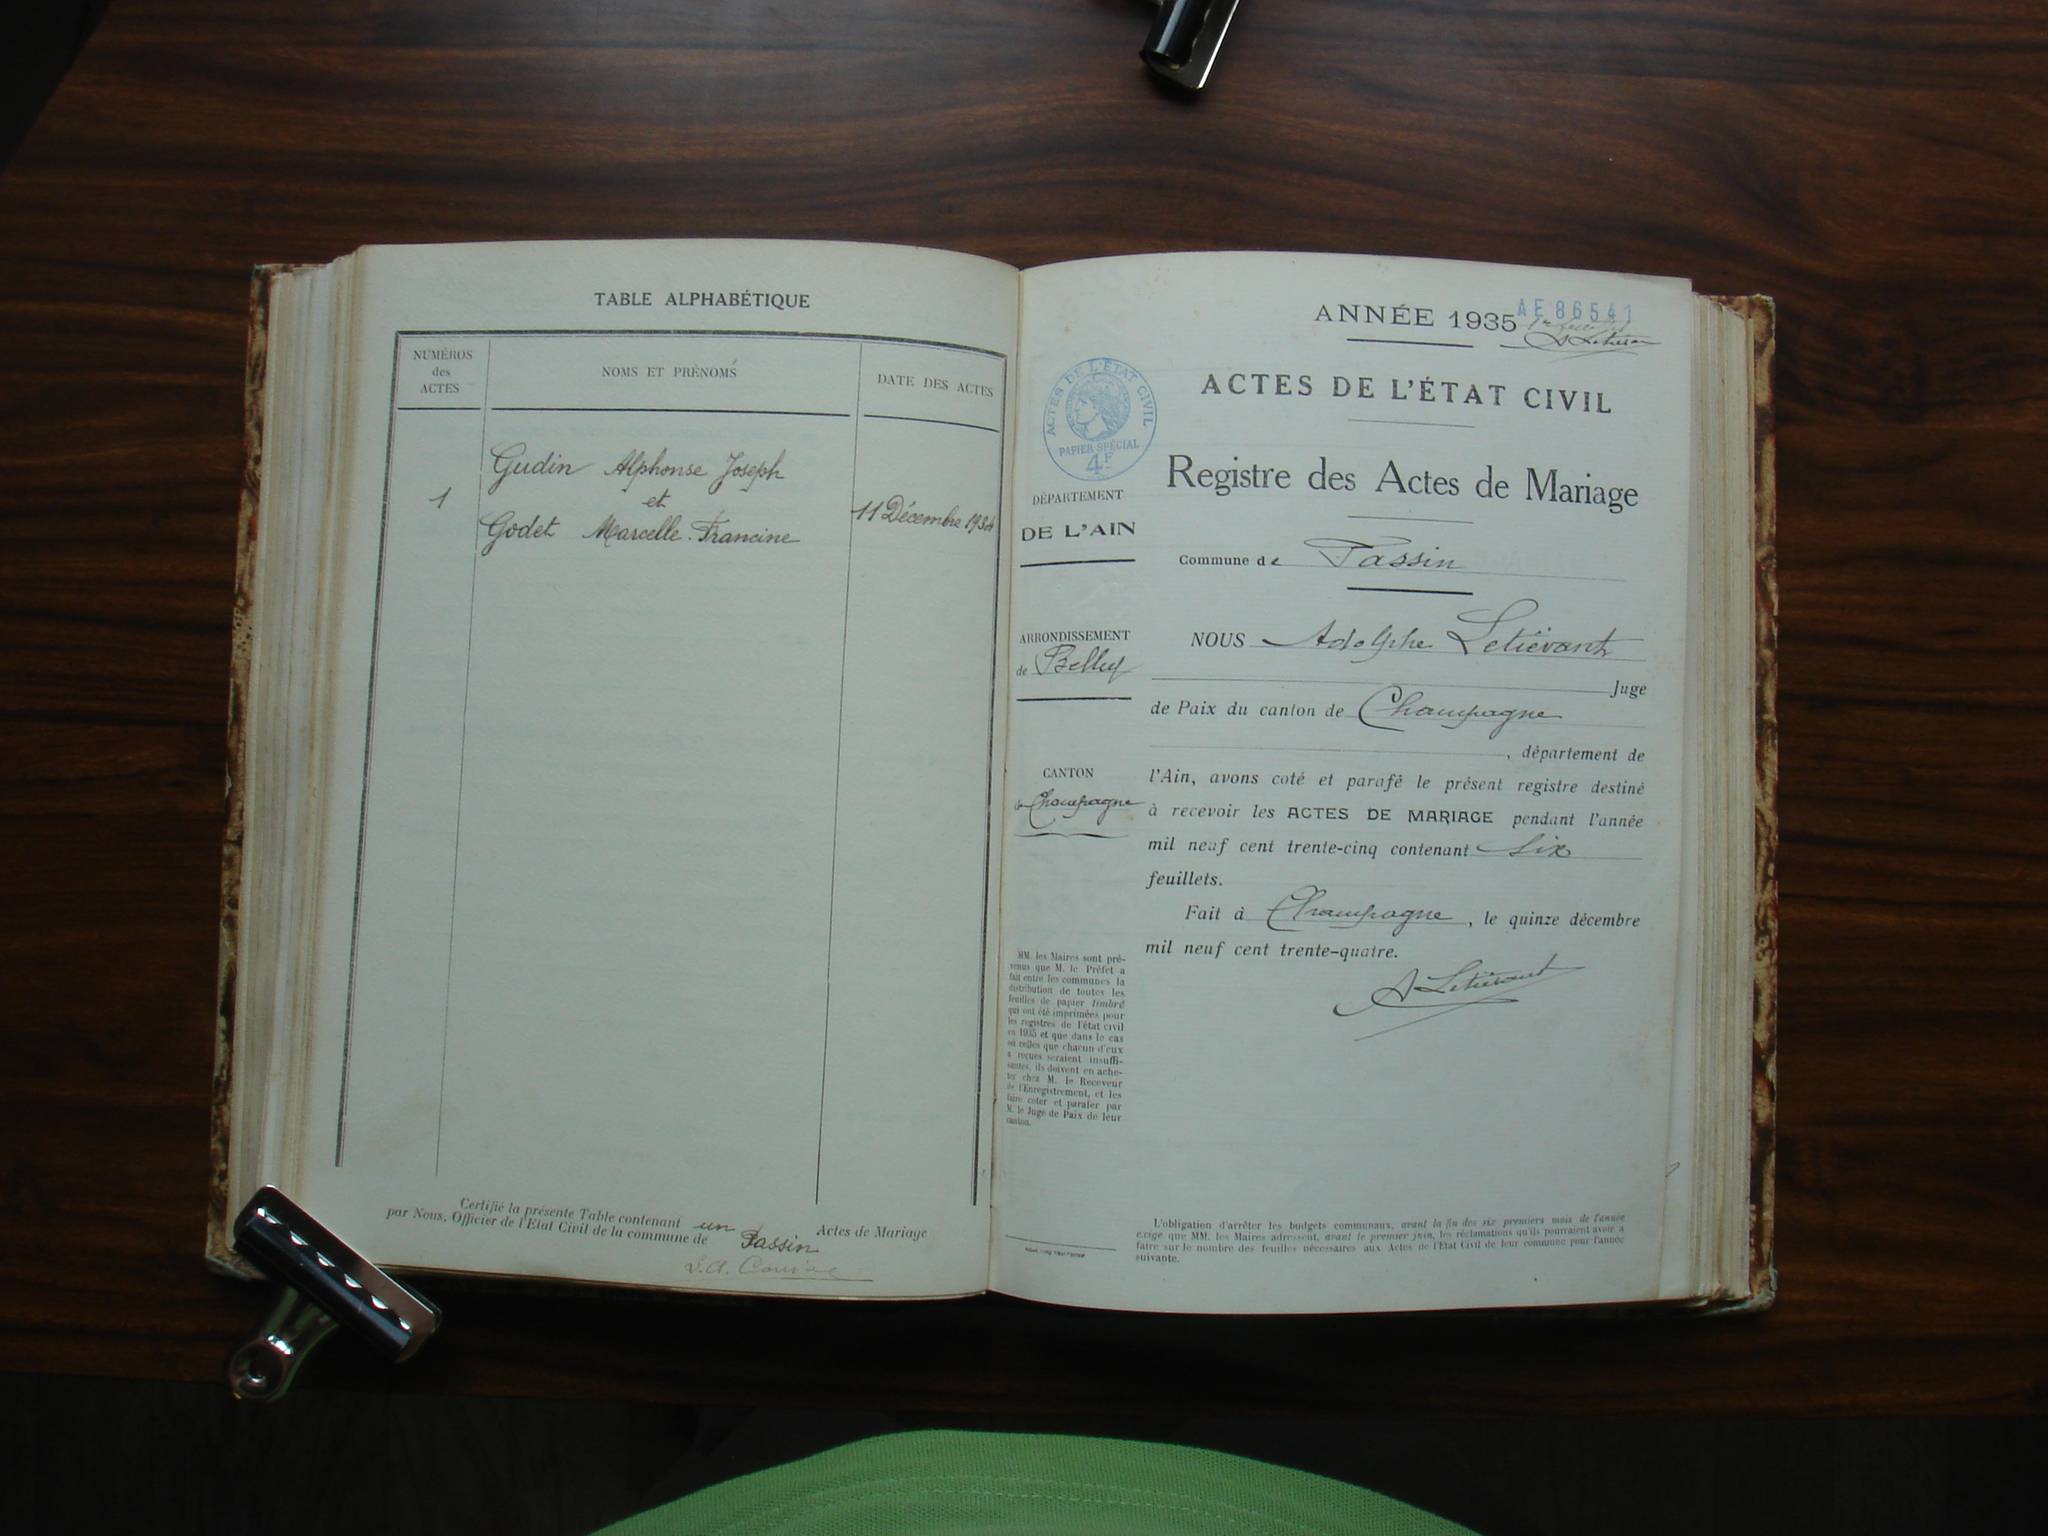 TABLE ALPHABÉTIQUE
NUMÉROS
des
ACTES
NOMS ET PRÉNOMS
DATE DES ACTES
1
Gudin Alphonse Joseph
et
Godet Marcelle Francine
11 Décembre 1934
Certifié la présente Table contenant un Actes de Mariage
par Nous, Officier de l'Etat Civil de la commune de Passin
ANNÉE 1935
AE 86541
A Letiévant
ACTES DE L'ÉTAT CIVIL
PAPIER SPÉCIAL
4F
ACTES DE L'ÉTAT CIVIL
Registre des Actes de Mariage
DÉPARTEMENT
DE L'AIN
Commune de Passin
ARRONDISSEMENT
de Belley
CANTON
de Champagne
NOUS Adolphe Letiévant
Juge
de Paix du canton de Champagne
, département de
l'Ain, avons coté et parafé le présent registre destiné
à recevoir les ACTES DE MARIAGE pendant l'année
mil neuf cent trente-cinq contenant six
feuillets.
Fait à Champagne, le quinze décembre
mil neuf cent trente-quatre.
A Letiévant
MM. les Maires sont pré-
venus que M. le Préfet a
fait entre les communes la
distribution de toutes les
feuilles de papier timbré
qui ont été imprimées pour
les registres de l'état civil
en 1935 et que dans le cas
où celles que chacun d'eux
a reçues seraient insuffi-
santes, ils doivent en ache-
ter chez M. le Receveur
de l'Enregistrement, et les
faire coter et parafer par
M. le Juge de Paix de leur
canton.
L'obligation d'arrêter les budgets communaux, avant la fin des six premiers mois de l'année
exige que MM. les Maires adressent, avant le premier juin, les réclamations qu'ils pourraient avoir à
faire sur le nombre des feuilles nécessaires aux Actes de l'Etat Civil de leur commune pour l'année
suivante.